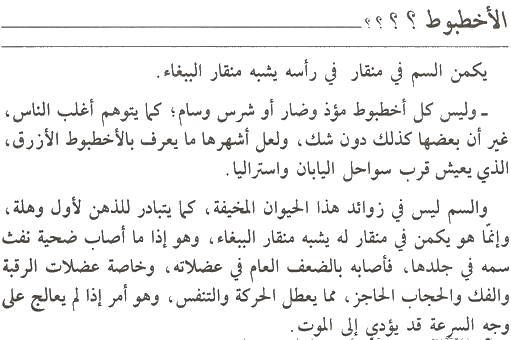 الأخطبوط ؟ ؟ ؟ ؟
يكمن السم في منقار في رأسه يشبه منقار الببغاء.
ـ وليس كل أخطبوط مؤذ وضار أو شرس وسام؛ كما يتوهم أغلب الناس،
غير أن بعضها كذلك دون شك، ولعل أشهرها ما يعرف بالأخطبوط الأزرق،
الذي يعيش قرب سواحل اليابان واستراليا.
والسم ليس في زوائد هذا الحيوان المخيفة، كما يتبادر للذهن لأول وهلة،
وإنّما هو يكمن في منقار له يشبه منقار الببغاء، وهو إذا ما أصاب ضحية نفث
سمه في جلدها، فأصابه بالضعف العام في عضلاته، وخاصة عضلات الرقبة
والفك والحجاب الحاجز، مما يعطل الحركة والتنفس، وهو أمر إذا لم يعالج على
وجه السرعة قد يؤدي إلى الموت.